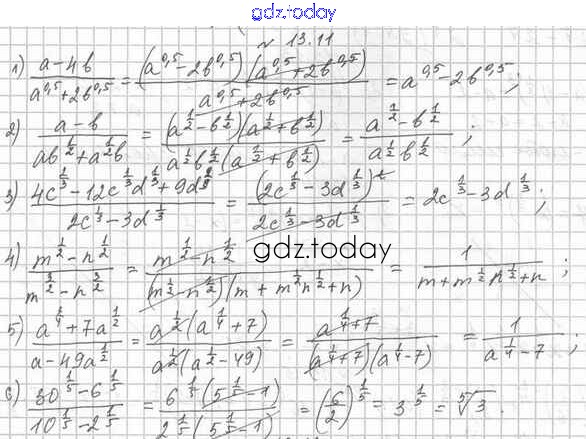 gdz.today
№ 13.11
1) (a - 4b)/(a^0,5 + 2b^0,5) = ((a^0,5 - 2b^0,5)(a^0,5 + 2b^0,5))/(a^0,5 + 2b^0,5) = a^0,5 - 2b^0,5;
2) (a - b)/(ab^(1/2) + a^(1/2)b) = ((a^(1/2) - b^(1/2))(a^(1/2) + b^(1/2)))/(a^(1/2)b^(1/2)(a^(1/2) + b^(1/2))) = (a^(1/2) - b^(1/2))/(a^(1/2)b^(1/2));
3) (4c^(2/3) - 12c^(1/3)d^(1/3) + 9d^(2/3))/(2c^(1/3) - 3d^(1/3)) = (2c^(1/3) - 3d^(1/3))^2/(2c^(1/3) - 3d^(1/3)) = 2c^(1/3) - 3d^(1/3);
4) (m^(1/2) - n^(1/2))/(m^(3/2) - n^(3/2)) = (m^(1/2) - n^(1/2))/((m^(1/2) - n^(1/2))(m + m^(1/2)n^(1/2) + n)) = 1/(m + m^(1/2)n^(1/2) + n);
gdz.today
5) (a^(3/4) + 7a^(1/2))/(a - 49a^(1/2)) = (a^(1/2)(a^(1/4) + 7))/(a^(1/2)(a^(1/2) - 49)) = (a^(1/4) + 7)/((a^(1/4) + 7)(a^(1/4) - 7)) = 1/(a^(1/4) - 7);
6) (30^(1/5) - 6^(1/5))/(10^(1/5) - 2^(1/5)) = (6^(1/5)(5^(1/5) - 1))/(2^(1/5)(5^(1/5) - 1)) = (6/2)^(1/5) = 3^(1/5) = ⁵√3.